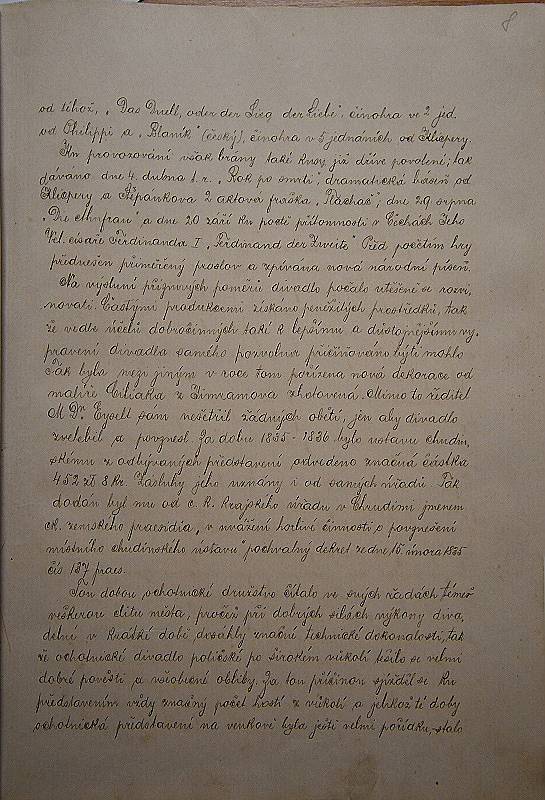 8
od téhož, „Das Duell, oder der Sieg der Liebe", činohra ve 2 jed.
od Philippi a „Blaník" (český), činohra v 5 jednáních od Klicpery.
Ku provozování však brány také kusy již dříve povolené; tak
dáváno dne 4. dubna t. r. „Rok po smrti", dramatická báseň od
Klicpery a Štěpánkova 2 aktová fraška „Rachač", dne 29 srpna
„Die Ehnfrau" a dne 20 září ku poctě přítomnosti v Čechách Jeho
Vel. císaře Ferdinanda I „Ferdinand der Zweite". Před početím hry
přednešen přiměřený proslov a zpívána nová národní píseň.
Na výsluní příznivých poměrů divadlo počalo utěšeně se rozvi,
novati. Častými produkcemi získáno peněžitých prostředků, tak
že vedle účelů dobročinných také k lepšímu a důstojnějšímu vy,
pravení divadla samého pozvolna přičiňováno býti mohlo
Tak byla mezi jiným v roce tom pořízena nová dekorace od
malíře z Jimramova zhotovená. Mimo to ředitel
M Dr. Eysell sám nešetřil žádných obětí, jen aby divadlo
zvelebil a povznesl. Za dobu 1835-1836 bylo ústavu chudin,
skému z odbývaných představení odvedeno značná částka
452 zl 8 kr. Zásluhy jeho uznány i od samých úřadů. Tak
dodán byl mu od c. k. krajského úřadu v Chrudimi jmenem
ck. zemského praesidia, „v uvážení horlivé činnosti o povznešení
místního chudinského ústavu" pochvalný dekret ze dne 15. února 1835
čís 137 praes.
Tou dobou ochotnické družstvo čítalo ve svých řadách téměř
veškerou elitu města, pročež při dobrých silách výkony diva,
delní v krátké době dosáhly značné technické dokonalosti, tak
že ochotnické divadlo poličské po širokém vůkolí těšilo se velmi
dobré pověsti a všeobecné obliby. Za tou příčinou sjížděl se ku
představením vždy značný počet hostí z vůkolí a jelikož té doby
ochotnická představení na venkově byla ještě velmi pořídku, stalo